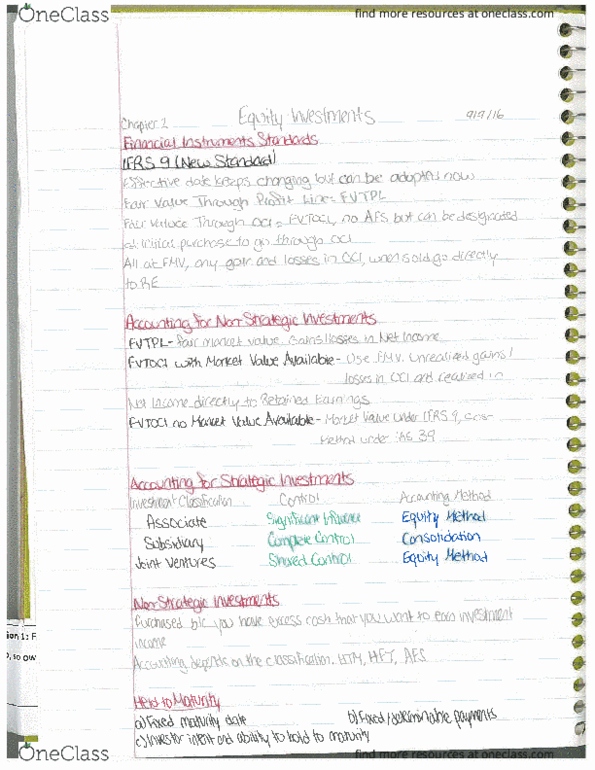 OneClass
find more resources at oneclass.com
Chapter 2 Equity Investments 9/9/16
Financial Instruments Standards
IFRS 9 (New Standard)
Effective date keeps changing but can be adopted now
Fair Value Through Profit Line = FVTPL
Fair Value Through OCI = FVTOCI, no AFS, but can be designated
at initial purchase to go through OCI
All at FMV, any gain and losses in OCI, when sold go directly
to RE
Accounting for Non-Strategic Investments
FVTPL - fair market value. Gains/losses in Net Income
FVTOCI with Market Value Available - Use FMV. Unrealized gains/
losses in OCI and realized in
Net Income directly to Retained Earnings
FVTOCI no Market Value Available - Market Value under IFRS 9, Cost
Method under IAS 39
Accounting for Strategic Investments
Investment Classification Control Accounting Method
Associate Significant Influence Equity Method
Subsidiary Complete Control Consolidation
Joint Ventures Shared Control Equity Method
Non-Strategic Investments
Purchased b/c you have excess cash that you want to earn investment
income
Accounting depends on the classification. HTM, HFT, AFS
Held to Maturity
a) Fixed maturity date b) Fixed/determinable payments
c) Investor intent and ability to hold to maturity
ion 1: F
, so ow
OneClass
find more resources at oneclass.com